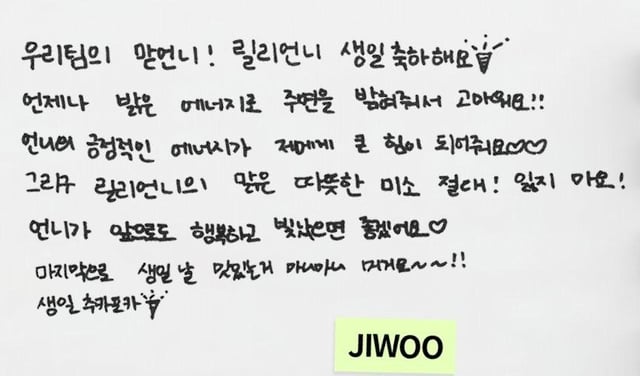 우리팀의 맏언니! 릴리언니 생일축하해요
언제나 밝은 에너지로 주변을 밝혀줘서 고마워요!!
언니의 긍정적인 에너지가 저에게 큰 힘이 되어줘요♡♡
그리구 릴리언니의 맑은 따뜻한 미소 절대! 잃지 마요!
언니가 앞으로도 행복하고 빛났으면 좋겠어요♡
마지막으로 생일날 맛있는거 마니마니 머거요~~!!
생일 추카포카
JIWOO